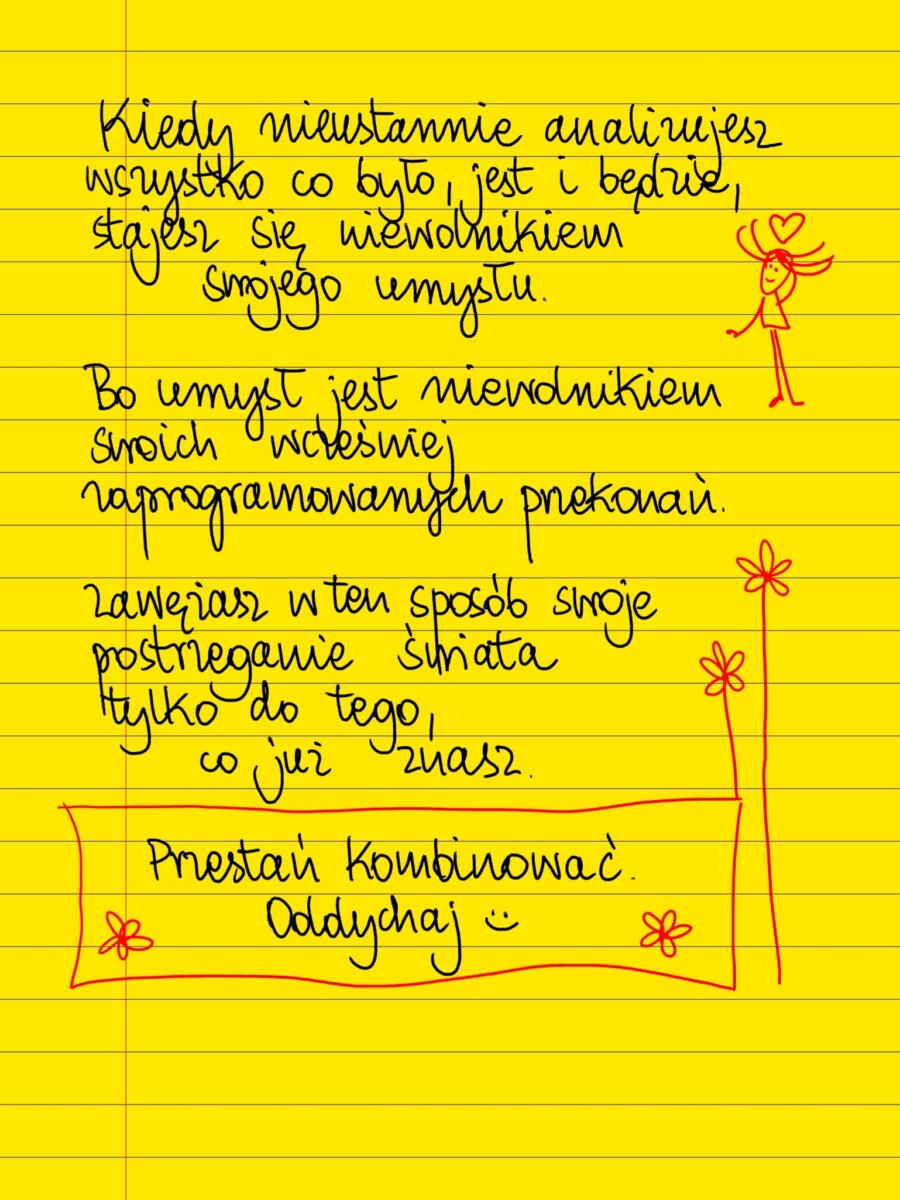 Kiedy nieustannie analizujesz
wszystko co było, jest i będzie,
stajesz się niewolnikiem
swojego umysłu.
Bo umysł jest niewolnikiem
swoich wcześniej
zaprogramowanych przekonań.
Zawężasz w ten sposób swoje
postrzeganie świata
tylko do tego,
co już znasz.
Przestań kombinować.
Oddychaj :)